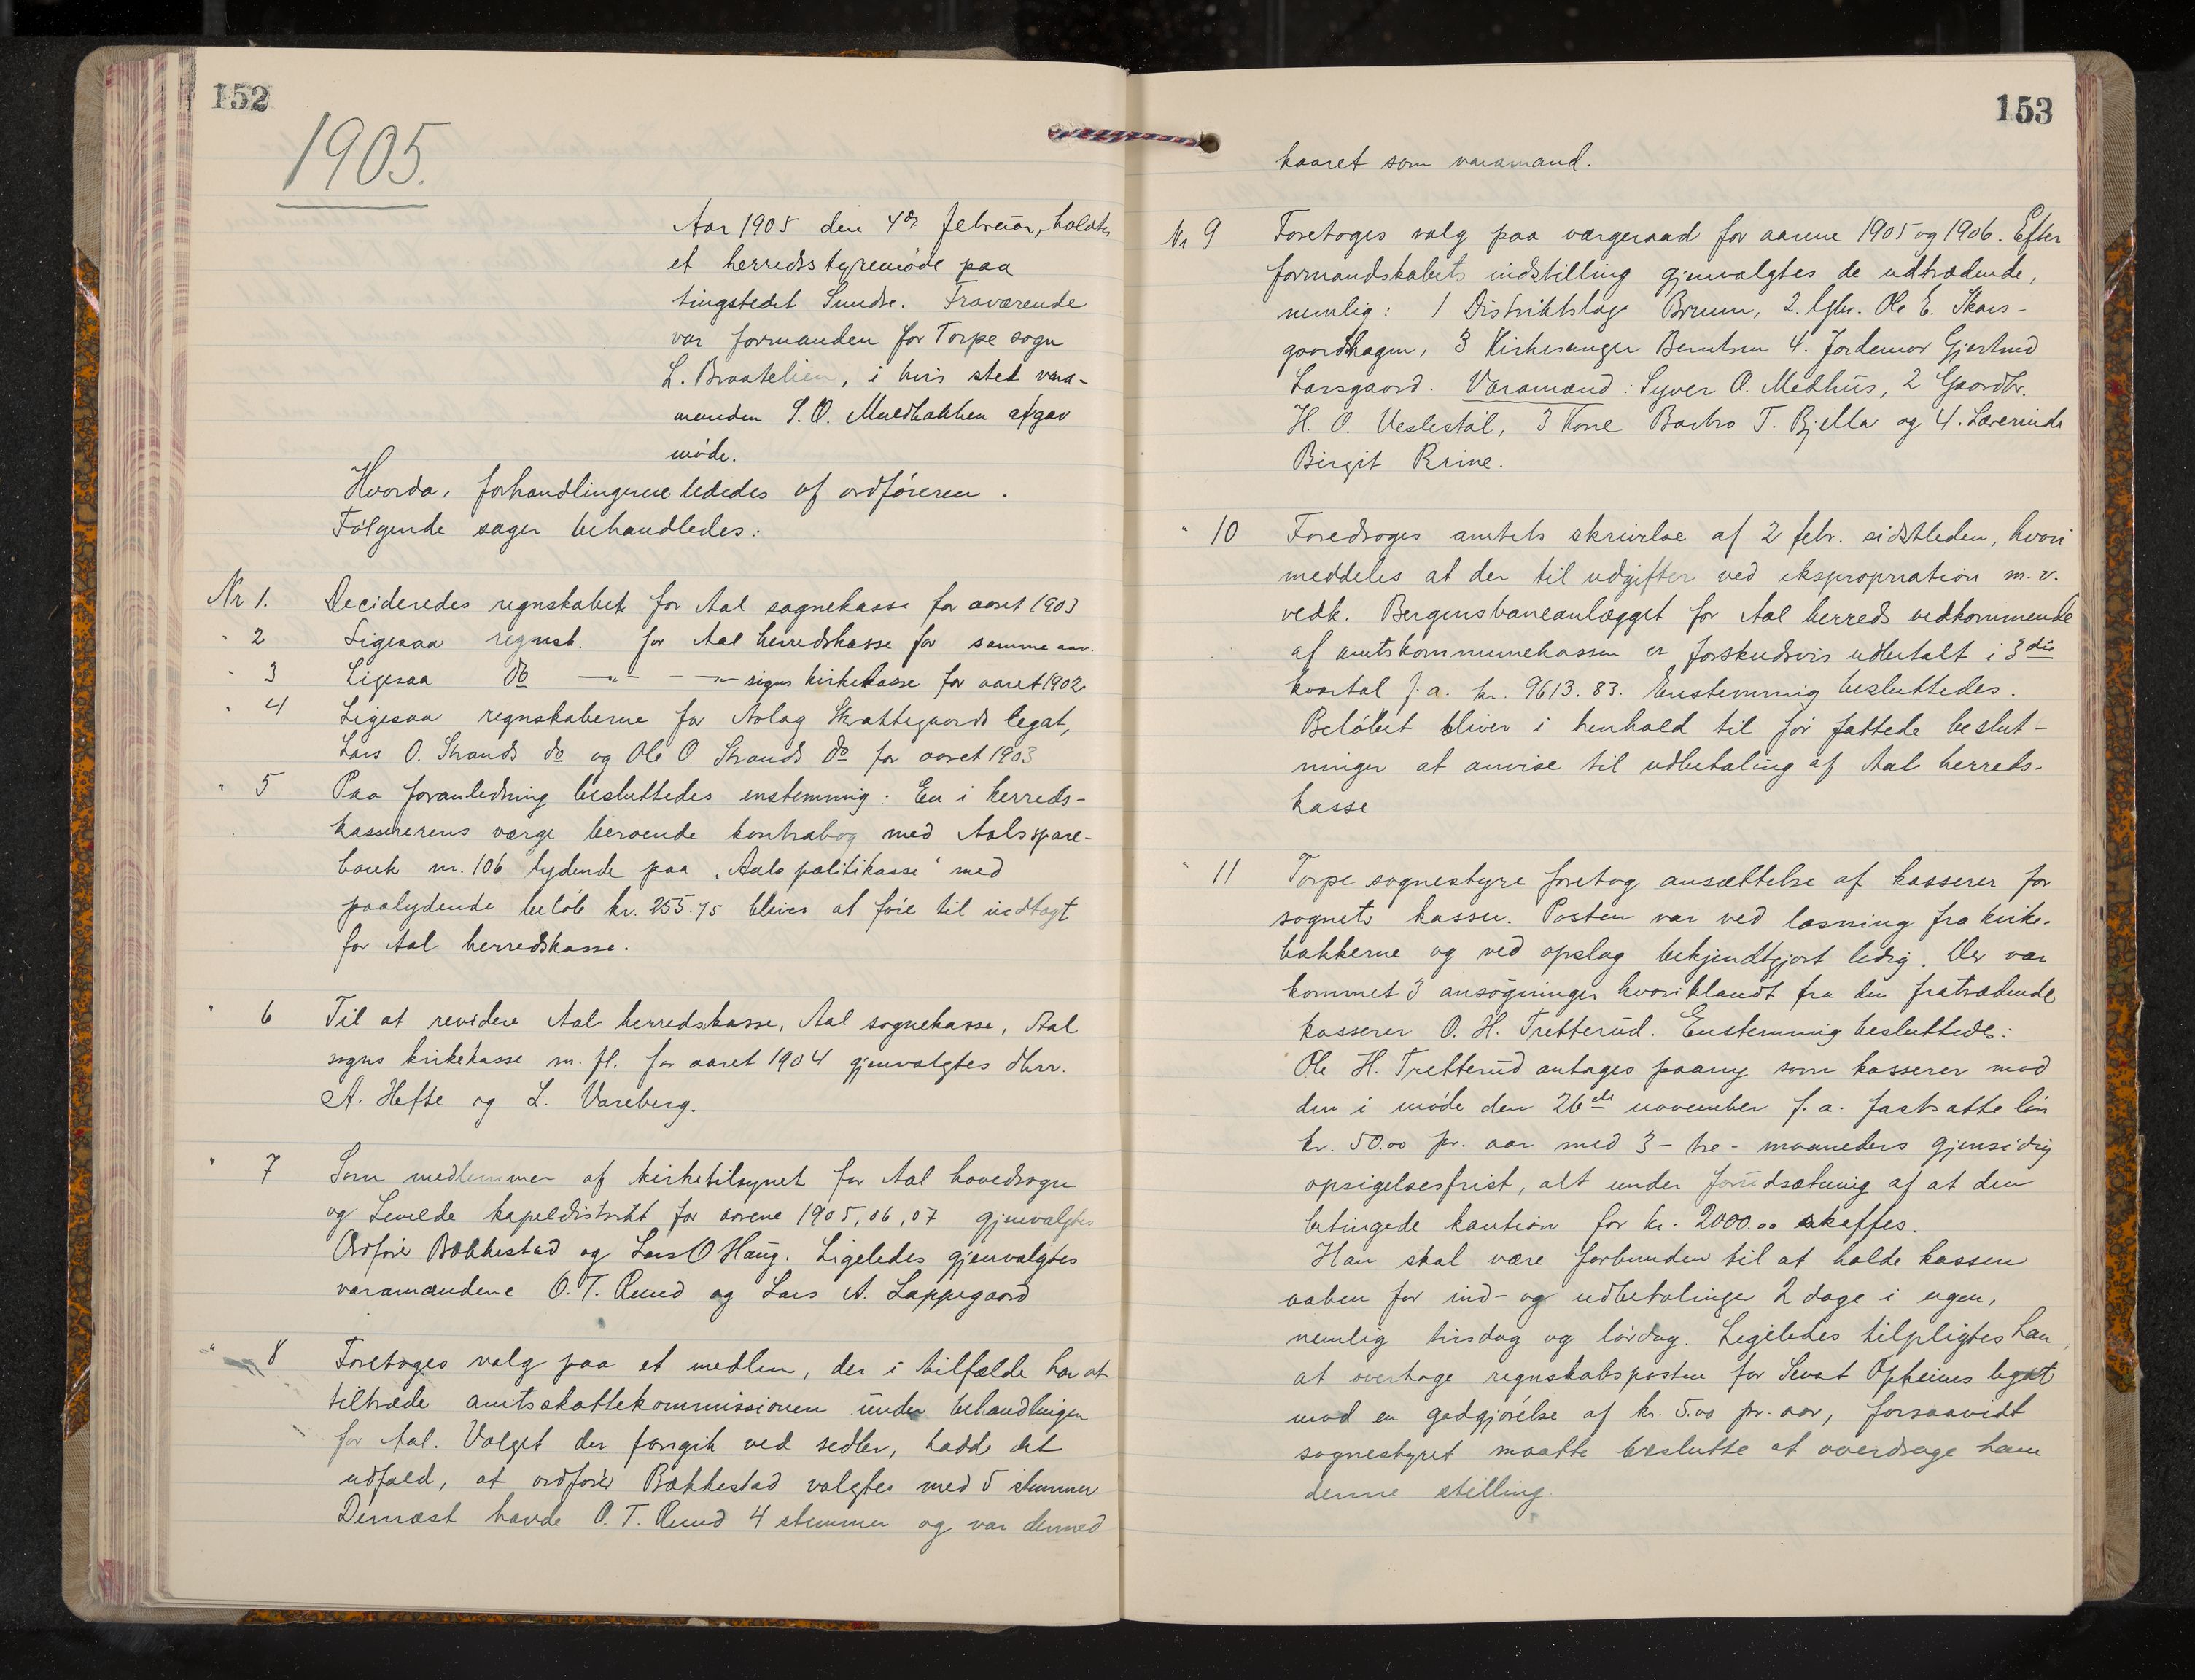 152
1905.
Aar 1905 den 4de februar, holdtes
et herredsstyremøde paa
tingstedet Sundre. Fraværende
var formanden for Torpe sogn
L. Braatelien, i hvis sted vara-
manden S. O. afgav
møde.
Hvorda, forhandlingerne lededes af ordføreren.
Følgende sager behandledes:
Nr 1. Decideredes regnskabet for Aal sognekasse for aaret 1903
" 2 Ligesaa regnsk. for Aal herredskasse for samme aar.
" 3 Ligesaa do —"— —"— sogns kirkekasse for aaret 1902
" 4 Ligesaa regnskaberne for Aslag Skrattegaards legat,
Lars O. Strands do og Ole O. Strands do for aaret 1903
" 5 Paa foranledning besluttedes enstemmig: En i herreds-
kassererens værge beroende kontrabog med Aals spare-
bank nr. 106 lydende paa "Aals politikasse" med
paalydende beløb kr. 255.75 bliver at føre til indtægt
for Aal herredskasse.
" 6 Til at revidere Aal herredskasse, Aal sognekasse, Aal
sogns kirkekasse m. fl. for aaret 1904 gjenvalgtes dhrr.
A. Hefte og L. Vareberg.
" 7 Som medlemmer af kirketilsynet for Aal hovedsogn
og Leveld kapeldistrikt for aarene 1905, 06, 07 gjenvalgtes
Ordfører Bækkestad og Lars O Haug. Ligeledes gjenvalgtes
varamændene O. T. Ruud og Lars A. Lappegaard
" 8 Foretoges valg paa et medlem, der i tilfælde har at
tiltræde amtsskattekommissionen under behandlingen
for Aal. Valget der foregik ved sedler, havde det
udfald, at ordfører Bækkestad valgtes med 5 stemmer
Dernæst havde O. T. Ruud 4 stemmer og var dermed
153
kaaret som varamand.
Nr 9 Foretoges valg paa værgeraad for aarene 1905 og 1906. Efter
formandskabets indstilling gjenvalgtes de udtrædende,
nemlig: 1 Distriktslæge Bruun, 2. Ole E. Skars-
gaardhagen, 3 Kirkesanger Berntsen 4. Jordemor Gjertrud
Larsgaard. Varamænd: Syver O. Medhus, 2 Gaardbr.
H. O. Veslestøl, 3 Kone Barbro T. Bjella og 4. Lærerinde
Birgit Rime.
" 10 Foredroges amtets skrivelse af 2 febr. sidstleden, hvori
meddeles at der til udgifter ved ekspropriation m.v.
vedk. Bergensbaneanlægget for Aal herreds vedkommende
af amtskommunekassen er forskudsvis udbetalt i 3die
kvartal f.a. kr. 9613.83. Enstemmig besluttedes.
Beløbet bliver i henhold til før fattede beslut-
ninger at anvise til udbetaling af Aal herreds-
kasse
" 11 Torpe sognestyre foretog ansættelse af kasserer for
sognets kasser. Posten var ved læsning fra kirke-
bakkerne og ved opslag bekjendtgjort ledig. Der var
kommet 3 ansøgninger hvoriblandt fra den fratrædende
kasserer O. H. Tretterud. Enstemmig besluttedes:
Ole H. Tretterud antages paany som kasserer mod
den i møde den 26de november f. a. fastsatte løn
kr. 50.00 pr. aar med 3 - tre - maaneders gjensidig
opsigelsesfrist, alt under forudsætning af at den
betingede kaution for kr. 2000.00 skaffes.
Han skal være forbunden til at holde kassen
aaben for ind- og udbetalinger 2 dage i ugen,
nemlig tirsdag og lørdag. Ligeledes tilpligtes han,
at overtage regnskabsposten for Sevat Opheims legat
mod en godgjørelse af kr. 5.00 pr. aar, forsaavidt
sognestyret maatte beslutte at overdrage ham
denne stilling.